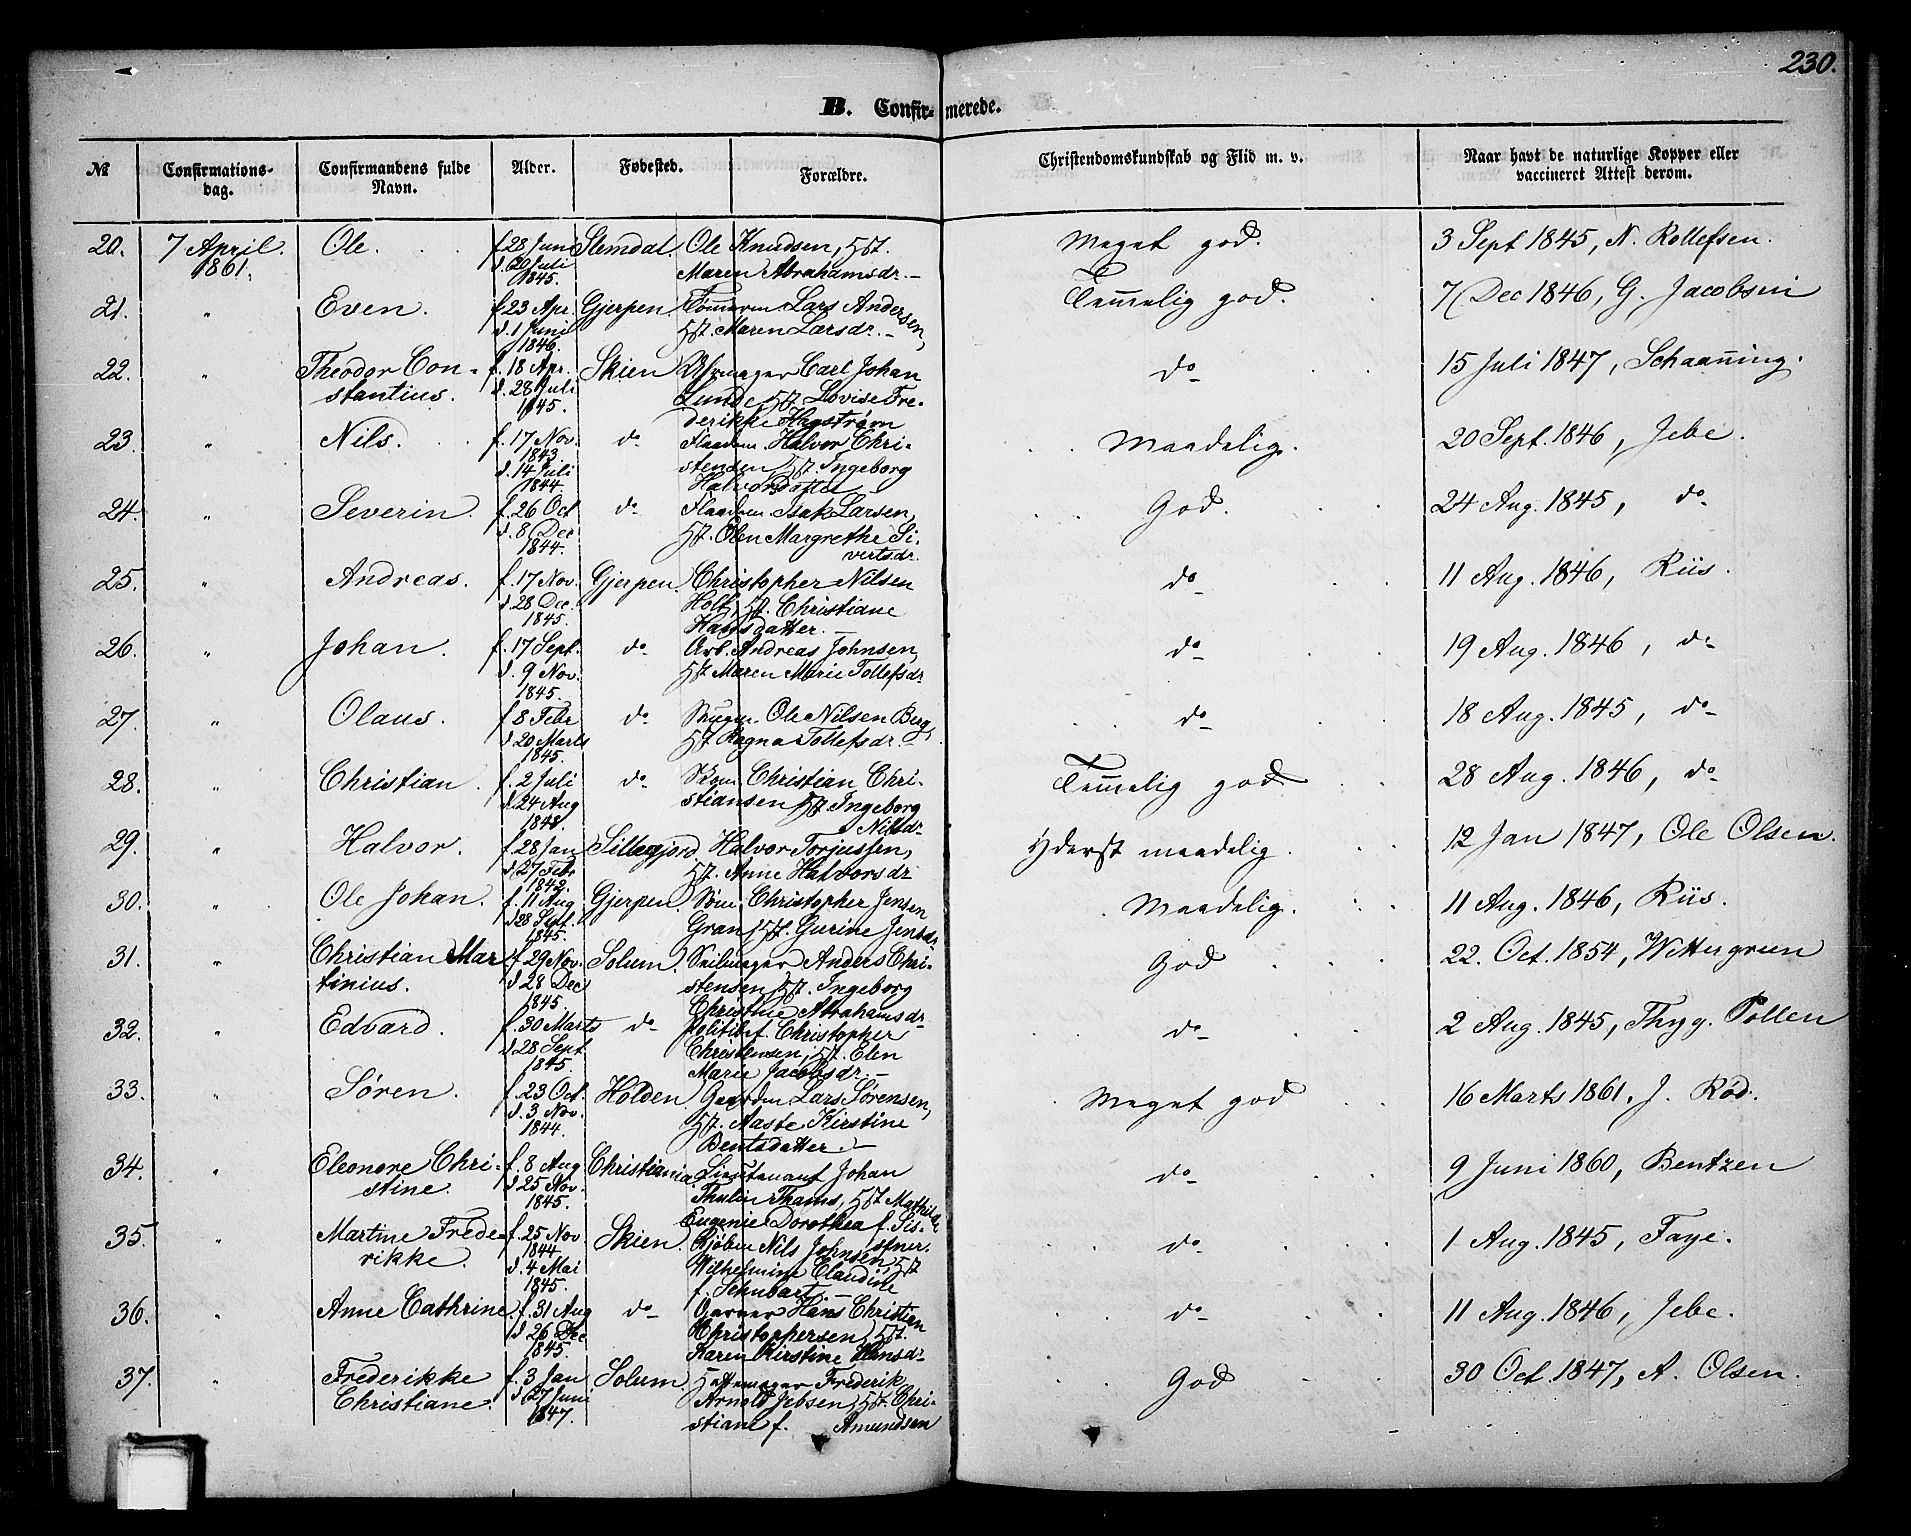 230.
B. Confirmerede.
№ Confirmations-dag. Confirmandens fulde Navn. Alder. Fødested. Forældre. Christendomskundskab og Flid m. v. Naar havt de naturlige Kopper eller vaccineret Attest derom.
20. 7 April Ole. f. 28 Juni Slemdal. Ole Knudsen, Hst. Meget god. 3 Sept 1845, N. Rollefsen.
1861. d. 20 Juli Maren Abrahamsdr.
1845.
21. " Even. f. 23 Apr. Gjerpen Tømmerm Lars Andersen, Temmelig god. 7 Dec 1846, G. Jacobsen
d. 1 Juni Hst. Maren Larsdr.
1846.
22. " Theodor Con- f. 18 Apr. Skien Carl Johan do 15 Juli 1847, Schaanning.
stantius. d. 28 Juli Lunde, Hst. Lovise Fre-
1845. derikke Hegstrøm
23. " Nils. f. 17 Nov. do Halvor Chri- Maadelig. 20 Sept. 1846, Jebe.
1843 stensen, Hst. Ingeborg
d. 14 Juli Halvorsdatter
1844
24. " Severin. f. 26 Oct do Isak Larsen, God. 24 Aug. 1845, do
d. 8 Dec Hst. Olen Margrethe Si-
1844. vertsdr.
25. " Andreas. f. 17 Nov. Gjerpen. Christopher Nilsen do 11 Aug. 1846, Riis.
d. 28 Dec. Holt, Hst. Christiane
1845. Hansdatter.
26. " Johan. f. 17 Sept. do Arb. Andreas Johnsen, do 19 Aug. 1846, do
d. 9 Nov. Hst Maren Marie Tollefsdr
1845.
27. " Olaus. f. 8 Febr do Ole Nilsen Berg, do 18 Aug. 1845, do
d. 20 Marts Hst Ragna Tollefsdr.
1845.
28. " Christian. f. 2 Juli do Christian Chri- Temmelig god 28 Aug. 1846, do
d. 24 Aug stiansen Hst. Ingeborg
1848. Nilsdr
29. " Halvor. f. 28 Jan Sillegjord. Halvor Torjussen, Yderst maadelig. 12 Jan 1847, Ole Olsen.
d. 27 Febr Hst. Anne Halvorsdr
1842.
30. " Ole Johan. f. 11 Aug Gjerpen. Christopher Jensen Maadelig. 11 Aug. 1846, Riis.
d. 28 Sept. Gran, Hst. Gurine Jensdr.
1845.
31. " Christian Mar f. 29 Nov. Solum. Seilmager Anders Chri- God 22. Oct. 1854, Wettergreen
tinius. d. 28 Dec stensen, Hst. Ingeborg
1845. Christine Abrahamsdr
32. " Edvard. f. 30 Marts do Politibet. Christopher do 2 Aug. 1845, Thyg. Pollen
d. 28 Sept Christensen, Hst. Elen
1845. Marie Jacobsdr.
33. " Søren. f. 23 Oct. Holden. Lars Sørensen, Meget god 16 Marts 1861, J. Rød.
d. 3 Nov. Hst. Aaste Kirstine
1844. Bentsdatter.
34. " Eleonore Chri- f. 8 Aug Christiania. Lieutenant Johan do 9 Juni 1860, Bentzen
stine. d. 25 Nov. Thulin Thams, Hst Mathilde
1845. Eugenie Dorothea f. Sis-
35. " Martine Frede- f. 25 Nov Skien. Kjøbm Nils Johnsen, do 1 Aug. 1845, Faye.
rikke. 1844 Wilhelmine Claudine, Hst
d. 4 Mai f. Schubart.
1845.
36. " Anne Cathrine. f. 31 Aug do Garver Hans Christian do 11 Aug. 1846, Jebe.
d. 26 Dec Christophersen, Hst.
1845. Karen Kirstine Hansdr
37. " Frederikke f. 3 Jan Solum. Frederik God 30 Oct. 1847, A. Olsen.
Christiane. d. 27 Juni Arnold Jebsen, Hst. Chri-
1847. stiane f. Amundsen